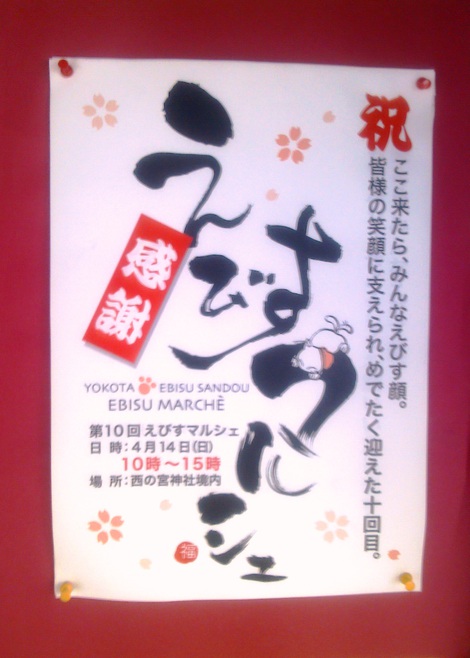 祝
ここ来たら、みんなえびす顔。
皆様の笑顔に支えられ、めでたく迎えた十回目。
えびす
マルシェ
感謝
YOKOTA EBISU SANDOU
EBISU MARCHÈ
第10回えびすマルシェ
日 時：4月14日(日)
10時～15時
場 所：西の宮神社境内
福